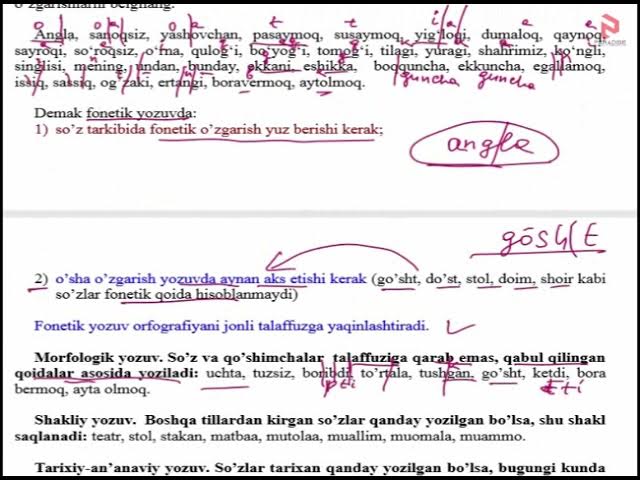 o'zgarishlarni belgilang:
Angla, sanoqsiz, yashovchan, pasaymoq, susaymoq, yig'loqi, dumaloq, qaynoq,
sayroqi, so'roqsiz, o'tma, qulog'i, bo'yog'i, tomog'i, tilagi, yuragi, shahrimiz, ko'ngli,
singlisi, mening, undan, bunday, ekkani, eshikka, boqquncha, ekkuncha, egallamoq,
issiq, sassiq, og'zaki, ertangi, boravermoq, aytolmoq.
guncha guncha
Demak fonetik yozuvda:
1) so'z tarkibida fonetik o'zgarish yuz berishi kerak;
angla
gōsh(t
2) o'sha o'zgarish yozuvda aynan aks etishi kerak (go'sht, do'st, stol, doim, shoir kabi
so'zlar fonetik qoida hisoblanmaydi)
Fonetik yozuv orfografiyani jonli talaffuzga yaqinlashtiradi.
Morfologik yozuv. So'z va qo'shimchalar talaffuziga qarab emas, qabul qilingan
qoidalar asosida yoziladi: uchta, tuzsiz, boribdi, to'rtala, tushgan, go'sht, ketdi, bora
bermoq, ayta olmoq.
pti tti
Shakliy yozuv. Boshqa tillardan kirgan so'zlar qanday yozilgan bo'lsa, shu shakl
saqlanadi: teatr, stol, stakan, matbaa, mutolaa, muallim, muomala, muammo.
Tarixiy-an'anaviy yozuv. So'zlar tarixan qanday yozilgan bo'lsa, bugungi kunda